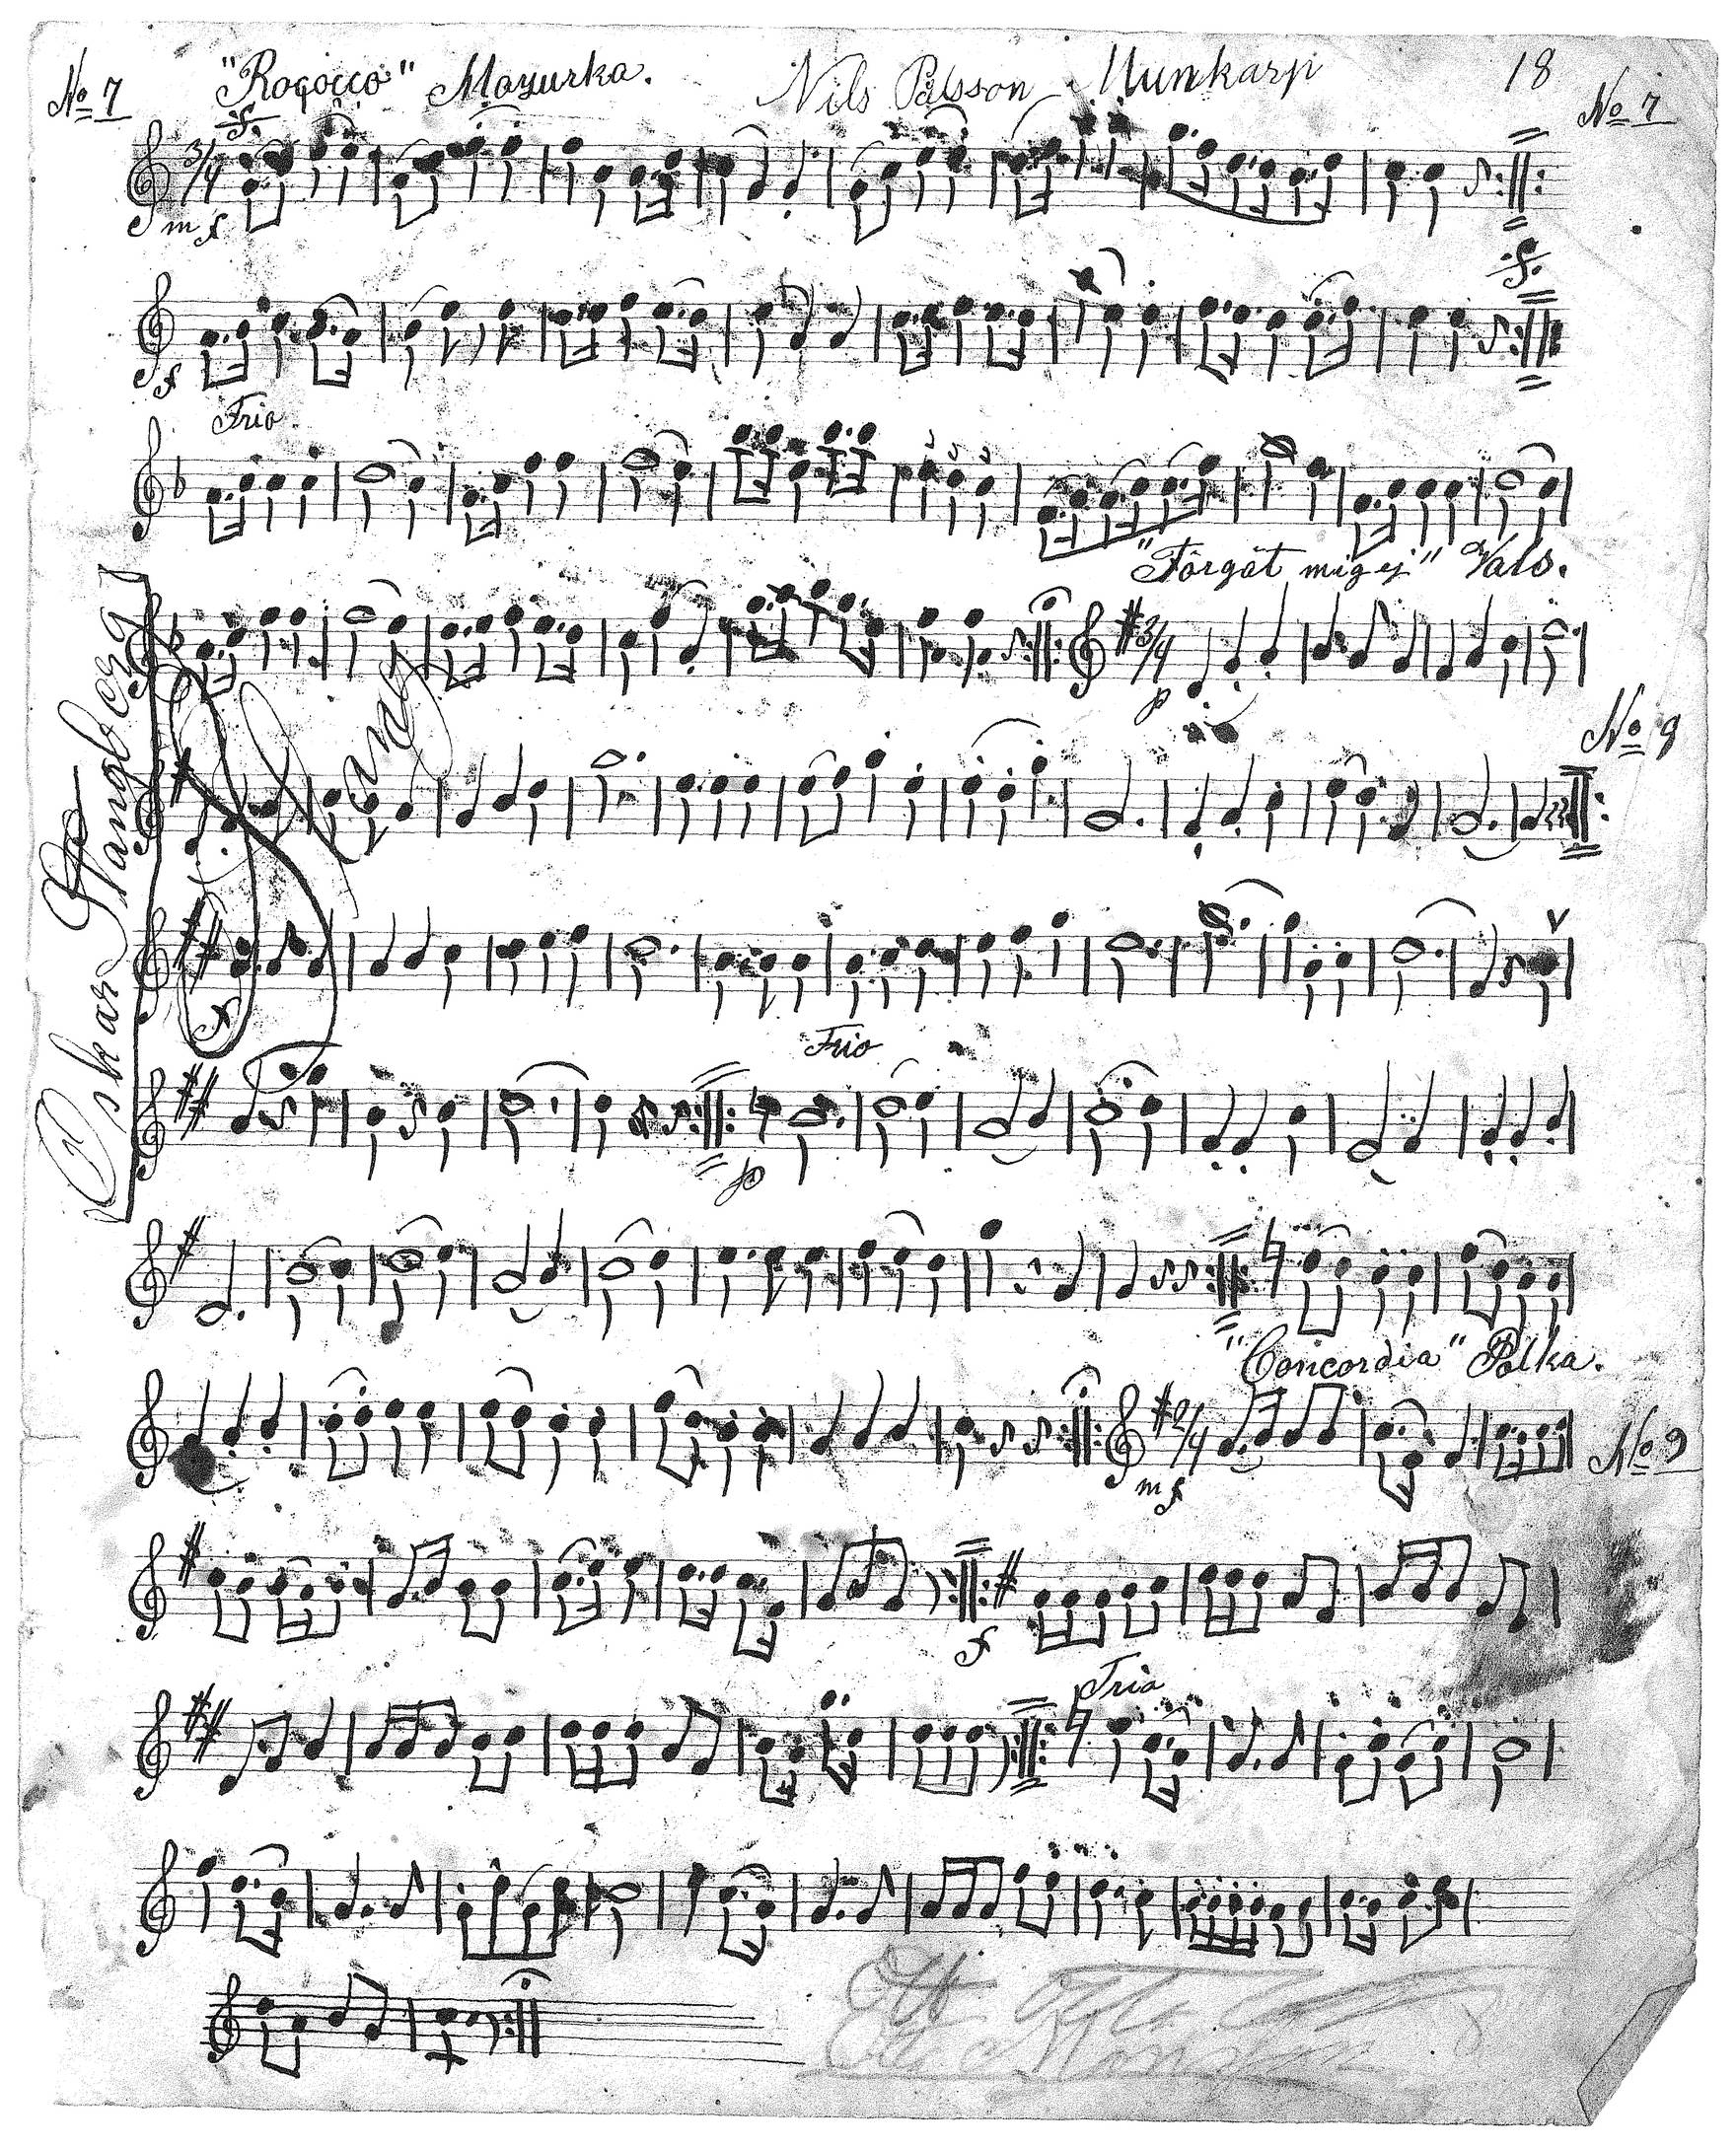 No 7 "Rococco" Mazurka. Nils Pålsson Munkarp 18 No 7
3/4
mf
f
Trio.
"Förgät mig ej" Vals.
3/4
p
No 8
Oskar
f
Trio
p
"Concordia" Polka.
2/4
mf
No 9
f
Trio